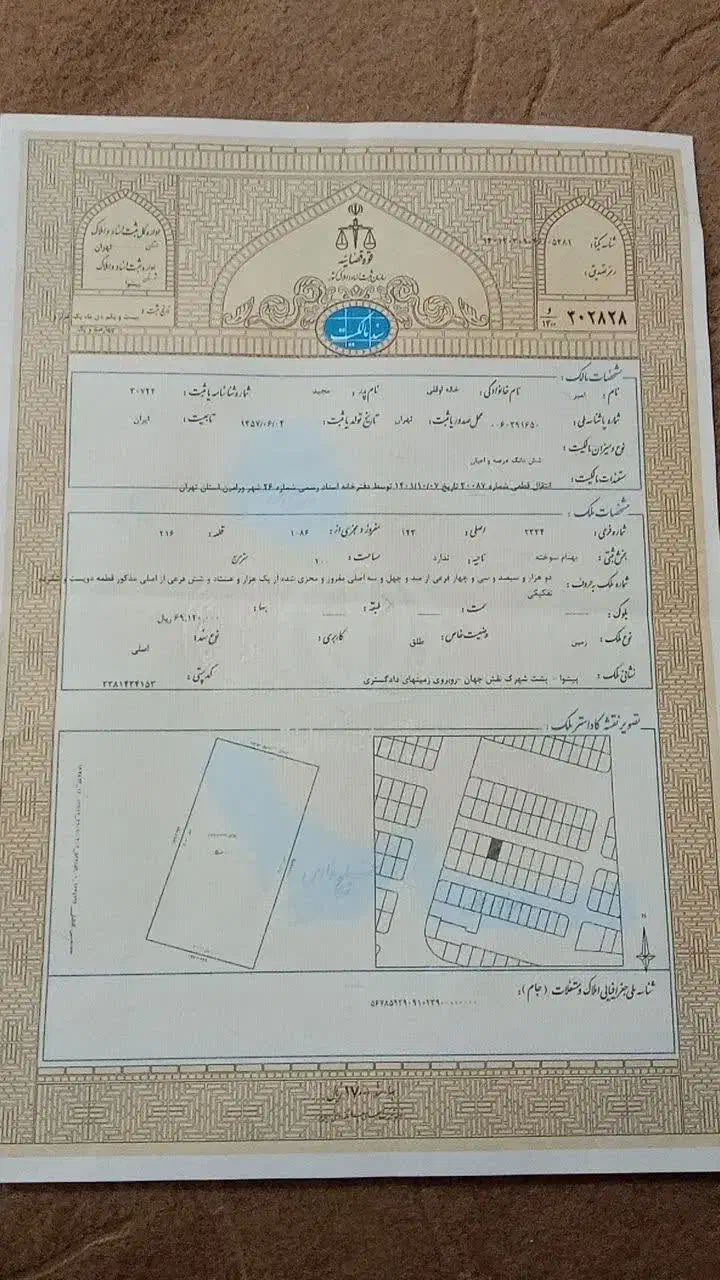 قوه قضائیه
سازمان ثبت اسناد و املاک کشور
اداره کل ثبت اسناد و املاک
استان تهران
اداره ثبت اسناد و املاک
پیشوا
شناسه یکتا:
رمز تصدیق:
۳۰۲۸۲۸
تاریخ ثبت:
سند مالکیت
مشخصات مالک:
نام: امیر نام خانوادگی: نام پدر: مجید شماره شناسنامه یا ثبت: ۳۰۷۲۲
شماره یا شناسه ملی: ۰۰۶۰۲۹۱۶۵۰ محل صدور یا ثبت: تهران تاریخ تولد یا ثبت: ۱۳۵۷/۰۶/۰۴ تابعیت: ایران
نوع و میزان مالکیت: شش دانگ عرصه و اعیان
مستندات مالکیت: انتقال قطعی شماره ۲۰۰۸۷ تاریخ ۱۴۰۱/۱۰/۰۷ توسط دفترخانه اسناد رسمی شماره ۲۶ شهر ورامین استان تهران
مشخصات ملک:
شماره فرعی: ۲۳۳۴ اصلی: ۱۴۳ مفروز و مجزی از: ۱۰۸۶ قطعه: ۲۱۶
بخش ثبتی: بهنام سوخته ناحیه: ندارد مساحت: ۱۰۰ مترمربع
شماره ملک به حروف: دو هزار و سیصد و سی و چهار فرعی از صد و چهل و سه اصلی مفروز و مجزی شده از یک هزار و هشتاد و شش فرعی از اصلی مذکور قطعه دویست و شانزده
تفکیکی
بلوک: سمت: طبقه: بها: ۶۹,۱۲۰,۰۰۰ ریال
نوع ملک: زمین وضعیت خاص: طلق کاربری: نوع سند: اصلی
نشانی ملک: پیشوا - پشت شهرک نقش جهان -روبروی زمینهای دادگستری کدپستی: ۳۳۸۱۴۳۴۱۵۳
تصویر نقشه کاداستر ملک:
N
شناسه ملی جغرافیایی املاک و مستغلات (جام):